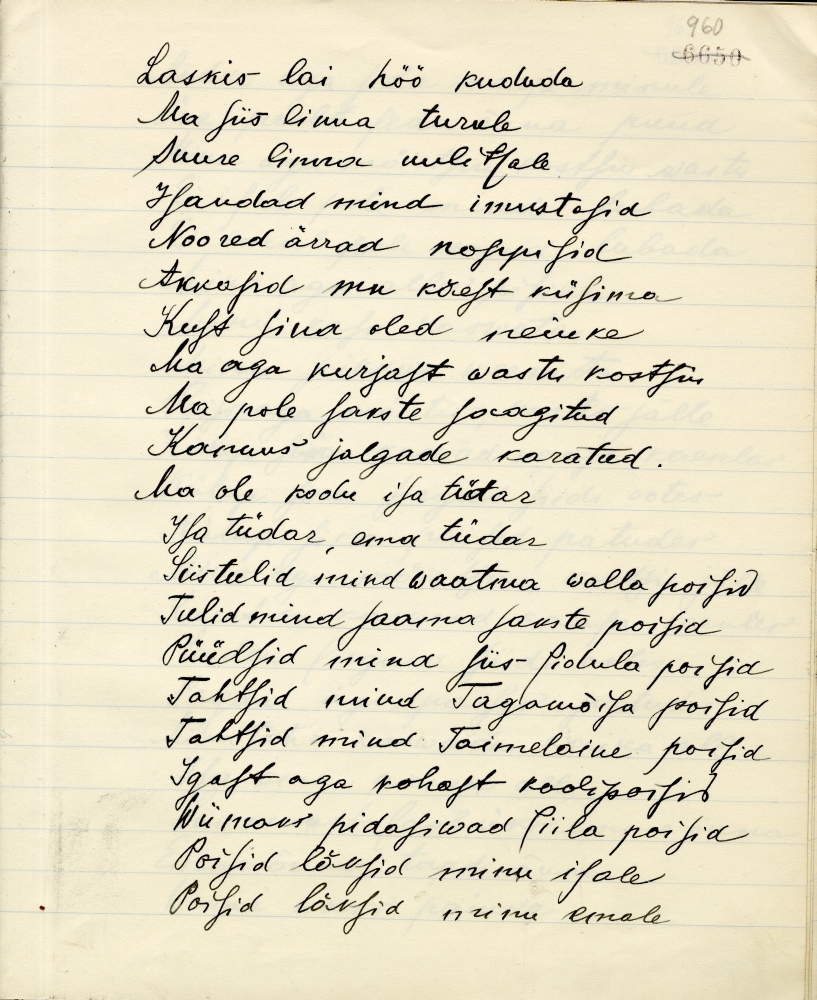 960
6650
Laskis lai höö kududa
Ma siis linna turule
Suure linna uulitsale
Isandad mind imustasid
Noored ärrad noppisid
Akkasid mu käest küsima
Kust sina oled neiuke
Ma aga kurjast wastu kostsin
Ma pole sakste saagitud
Kannus jalgade karatud.
Ma ole kodu isa tütar
Isa tüdar, ema tüdar
Siis tulid mind waatma walla poisid
Tulid mind saama sakste poisid
Püüdsid mind siis Sidula poisid
Tahtsid mind Tagamõisa poisid
Tahtsid mind Taimelaine poisid
Igast aga kohast koolipoisid
Wiimaks pidasiwad Siila poisid
Poisid läksid minu isale
Poisid läksid minu emale